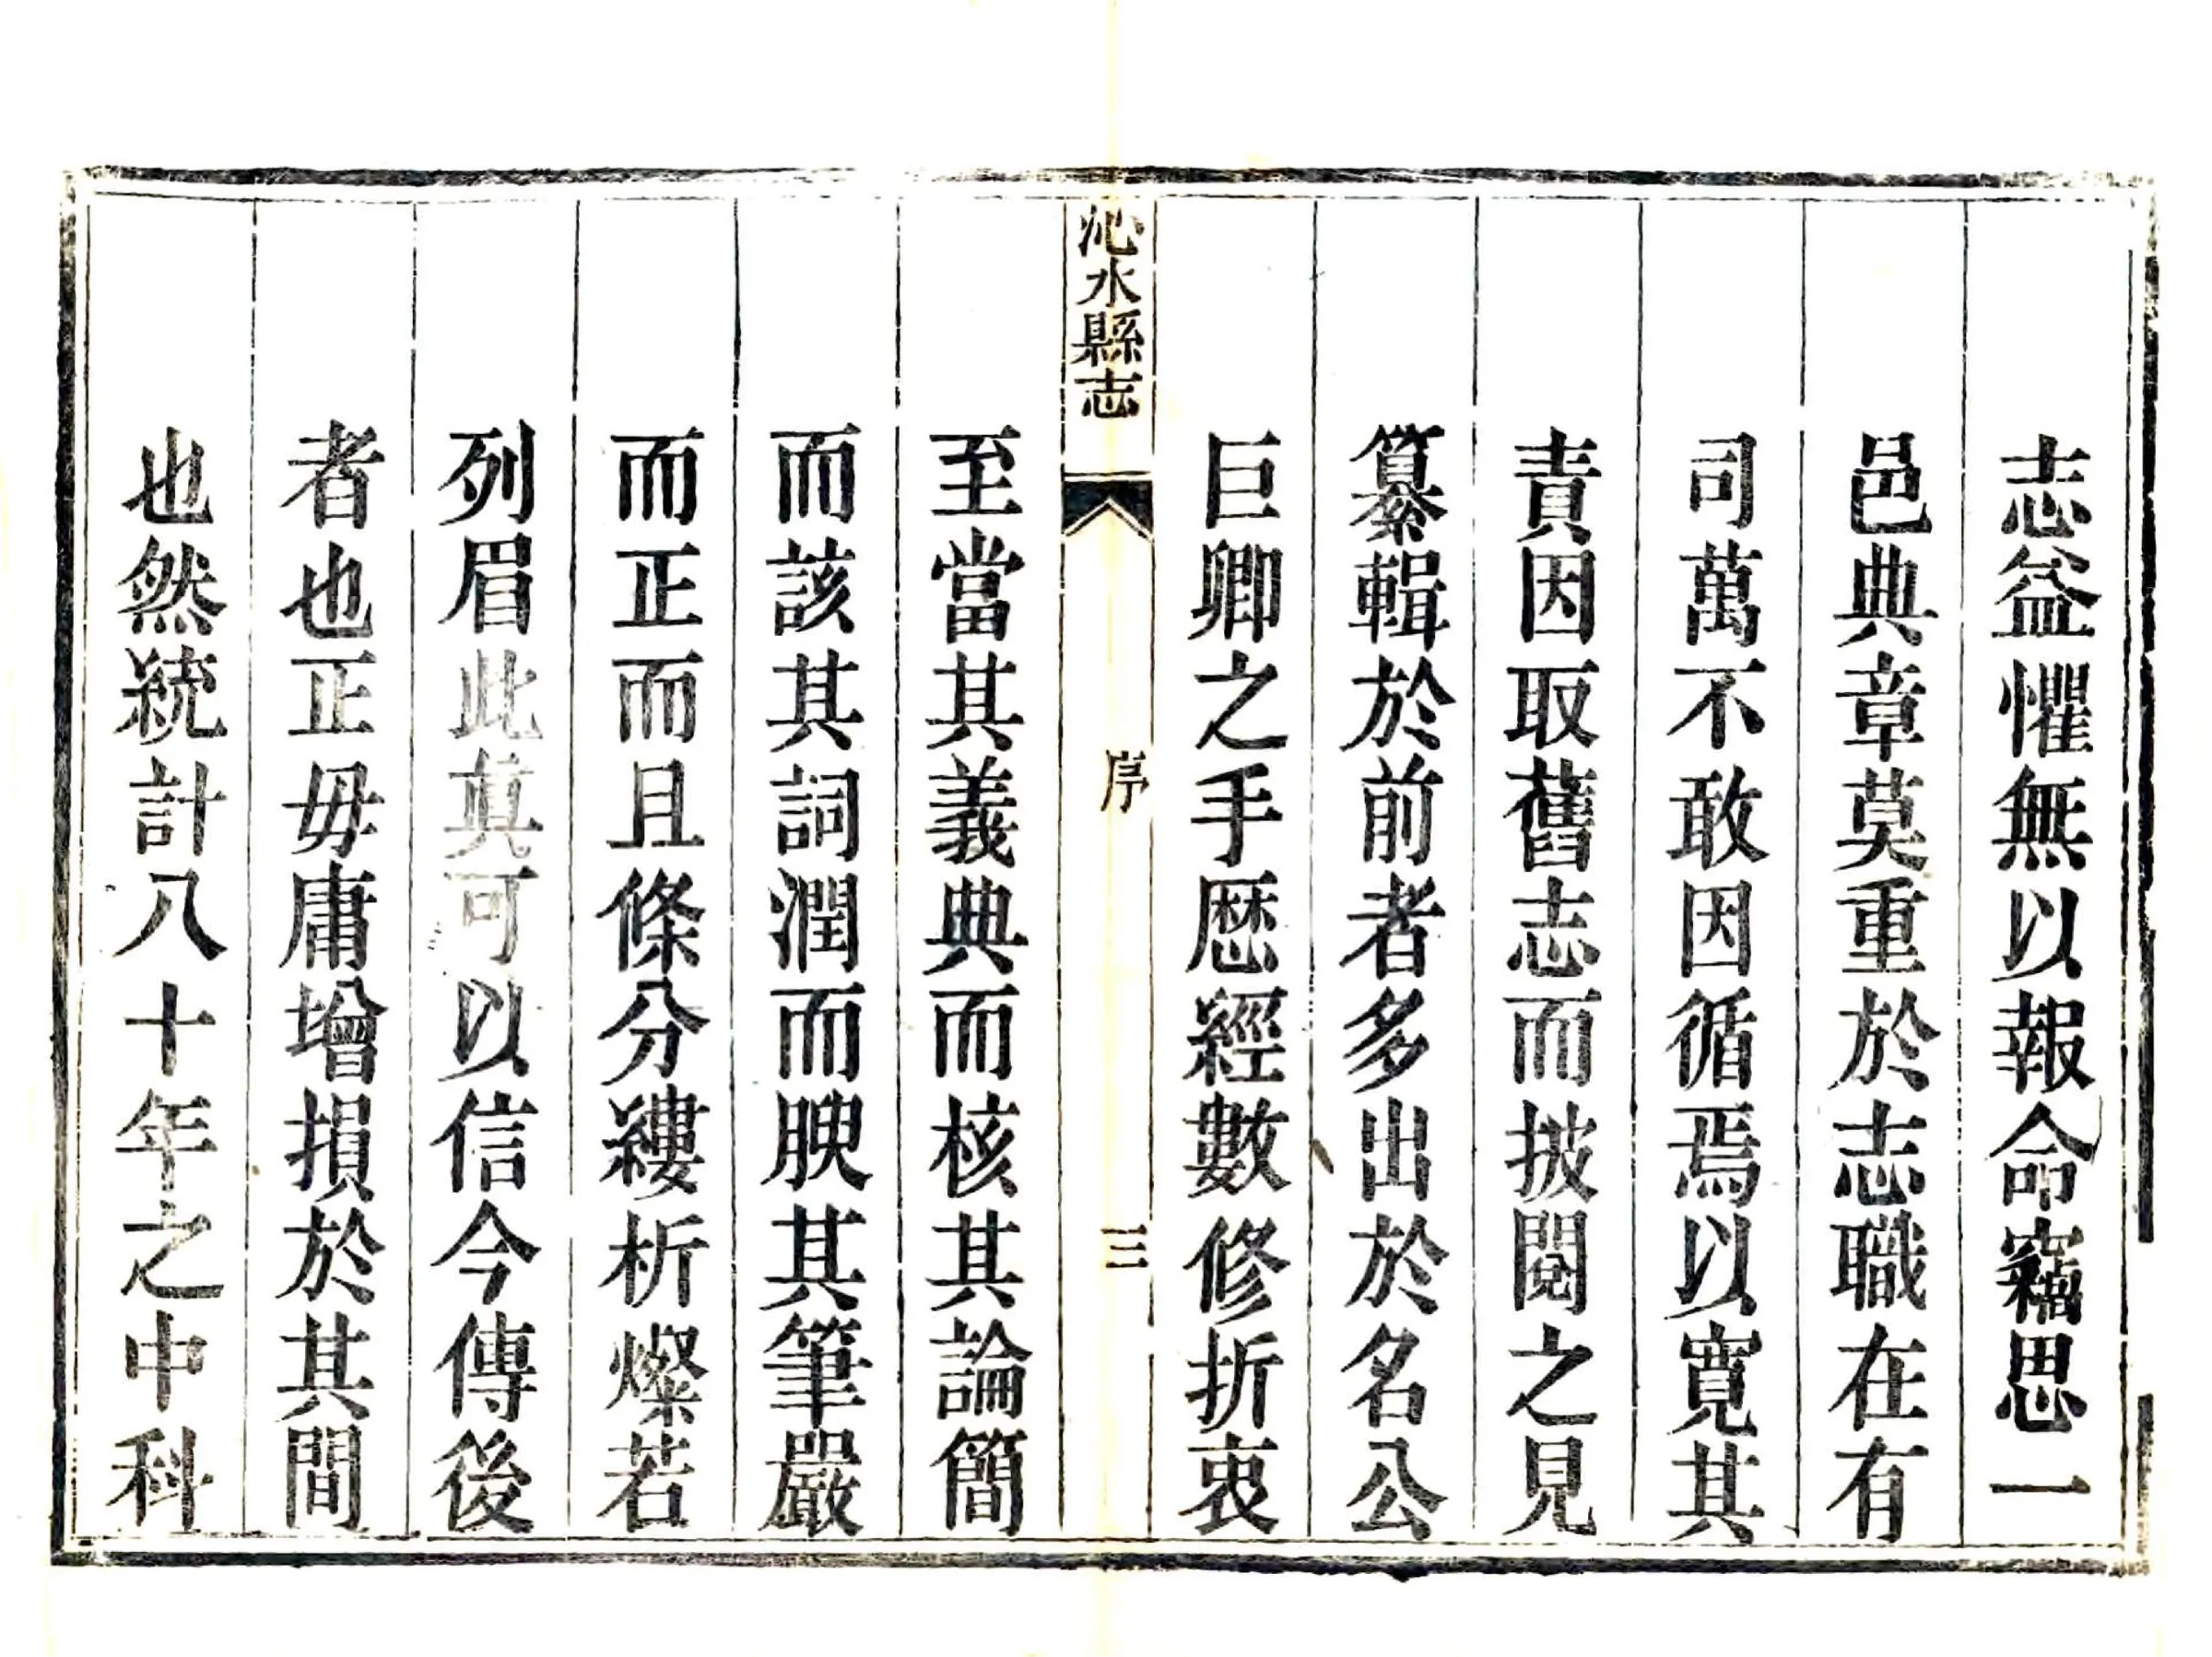 志益懼無以報命竊思一
邑典章莫重於志職在有
司萬不敢因循焉以寬其
責因取舊志而披閱之見
纂輯於前者多出於名公
巨卿之手歴經數修折衷
沁水縣志
序
三
至當其義典而核其論簡
而該其詞潤而腴其筆嚴
而正而且條分縷析燦若
列眉此真可以信今傳後
者也正毋庸增損於其間
也然統計八十年之中科